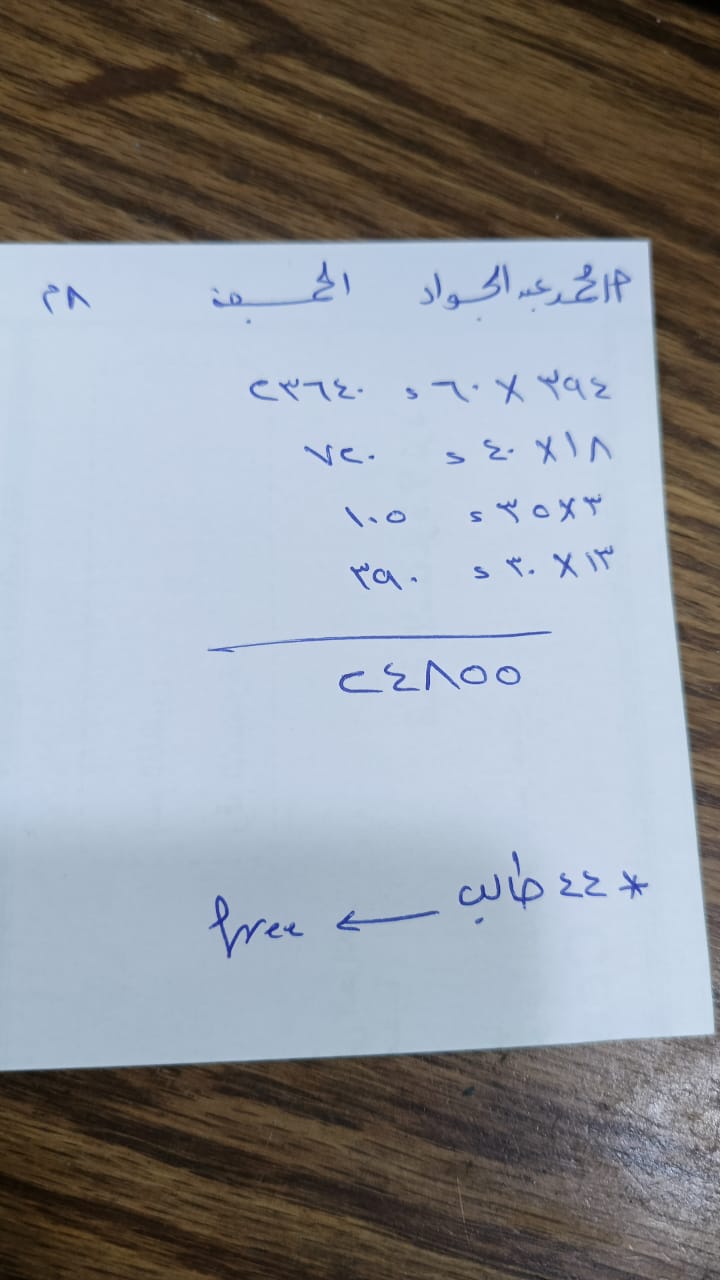 أ/محمد عبد الجواد الجمعة ٨م
٣٩٤ × ٦٠ = ٢٣٦٤٠
١٨ × ٤٠ = ٧٢٠
٣ × ٣٥ = ١٠٥
١٣ × ٣٠ = ٣٩٠
٢٤٨٥٥
* ٤٤ طالب ← free